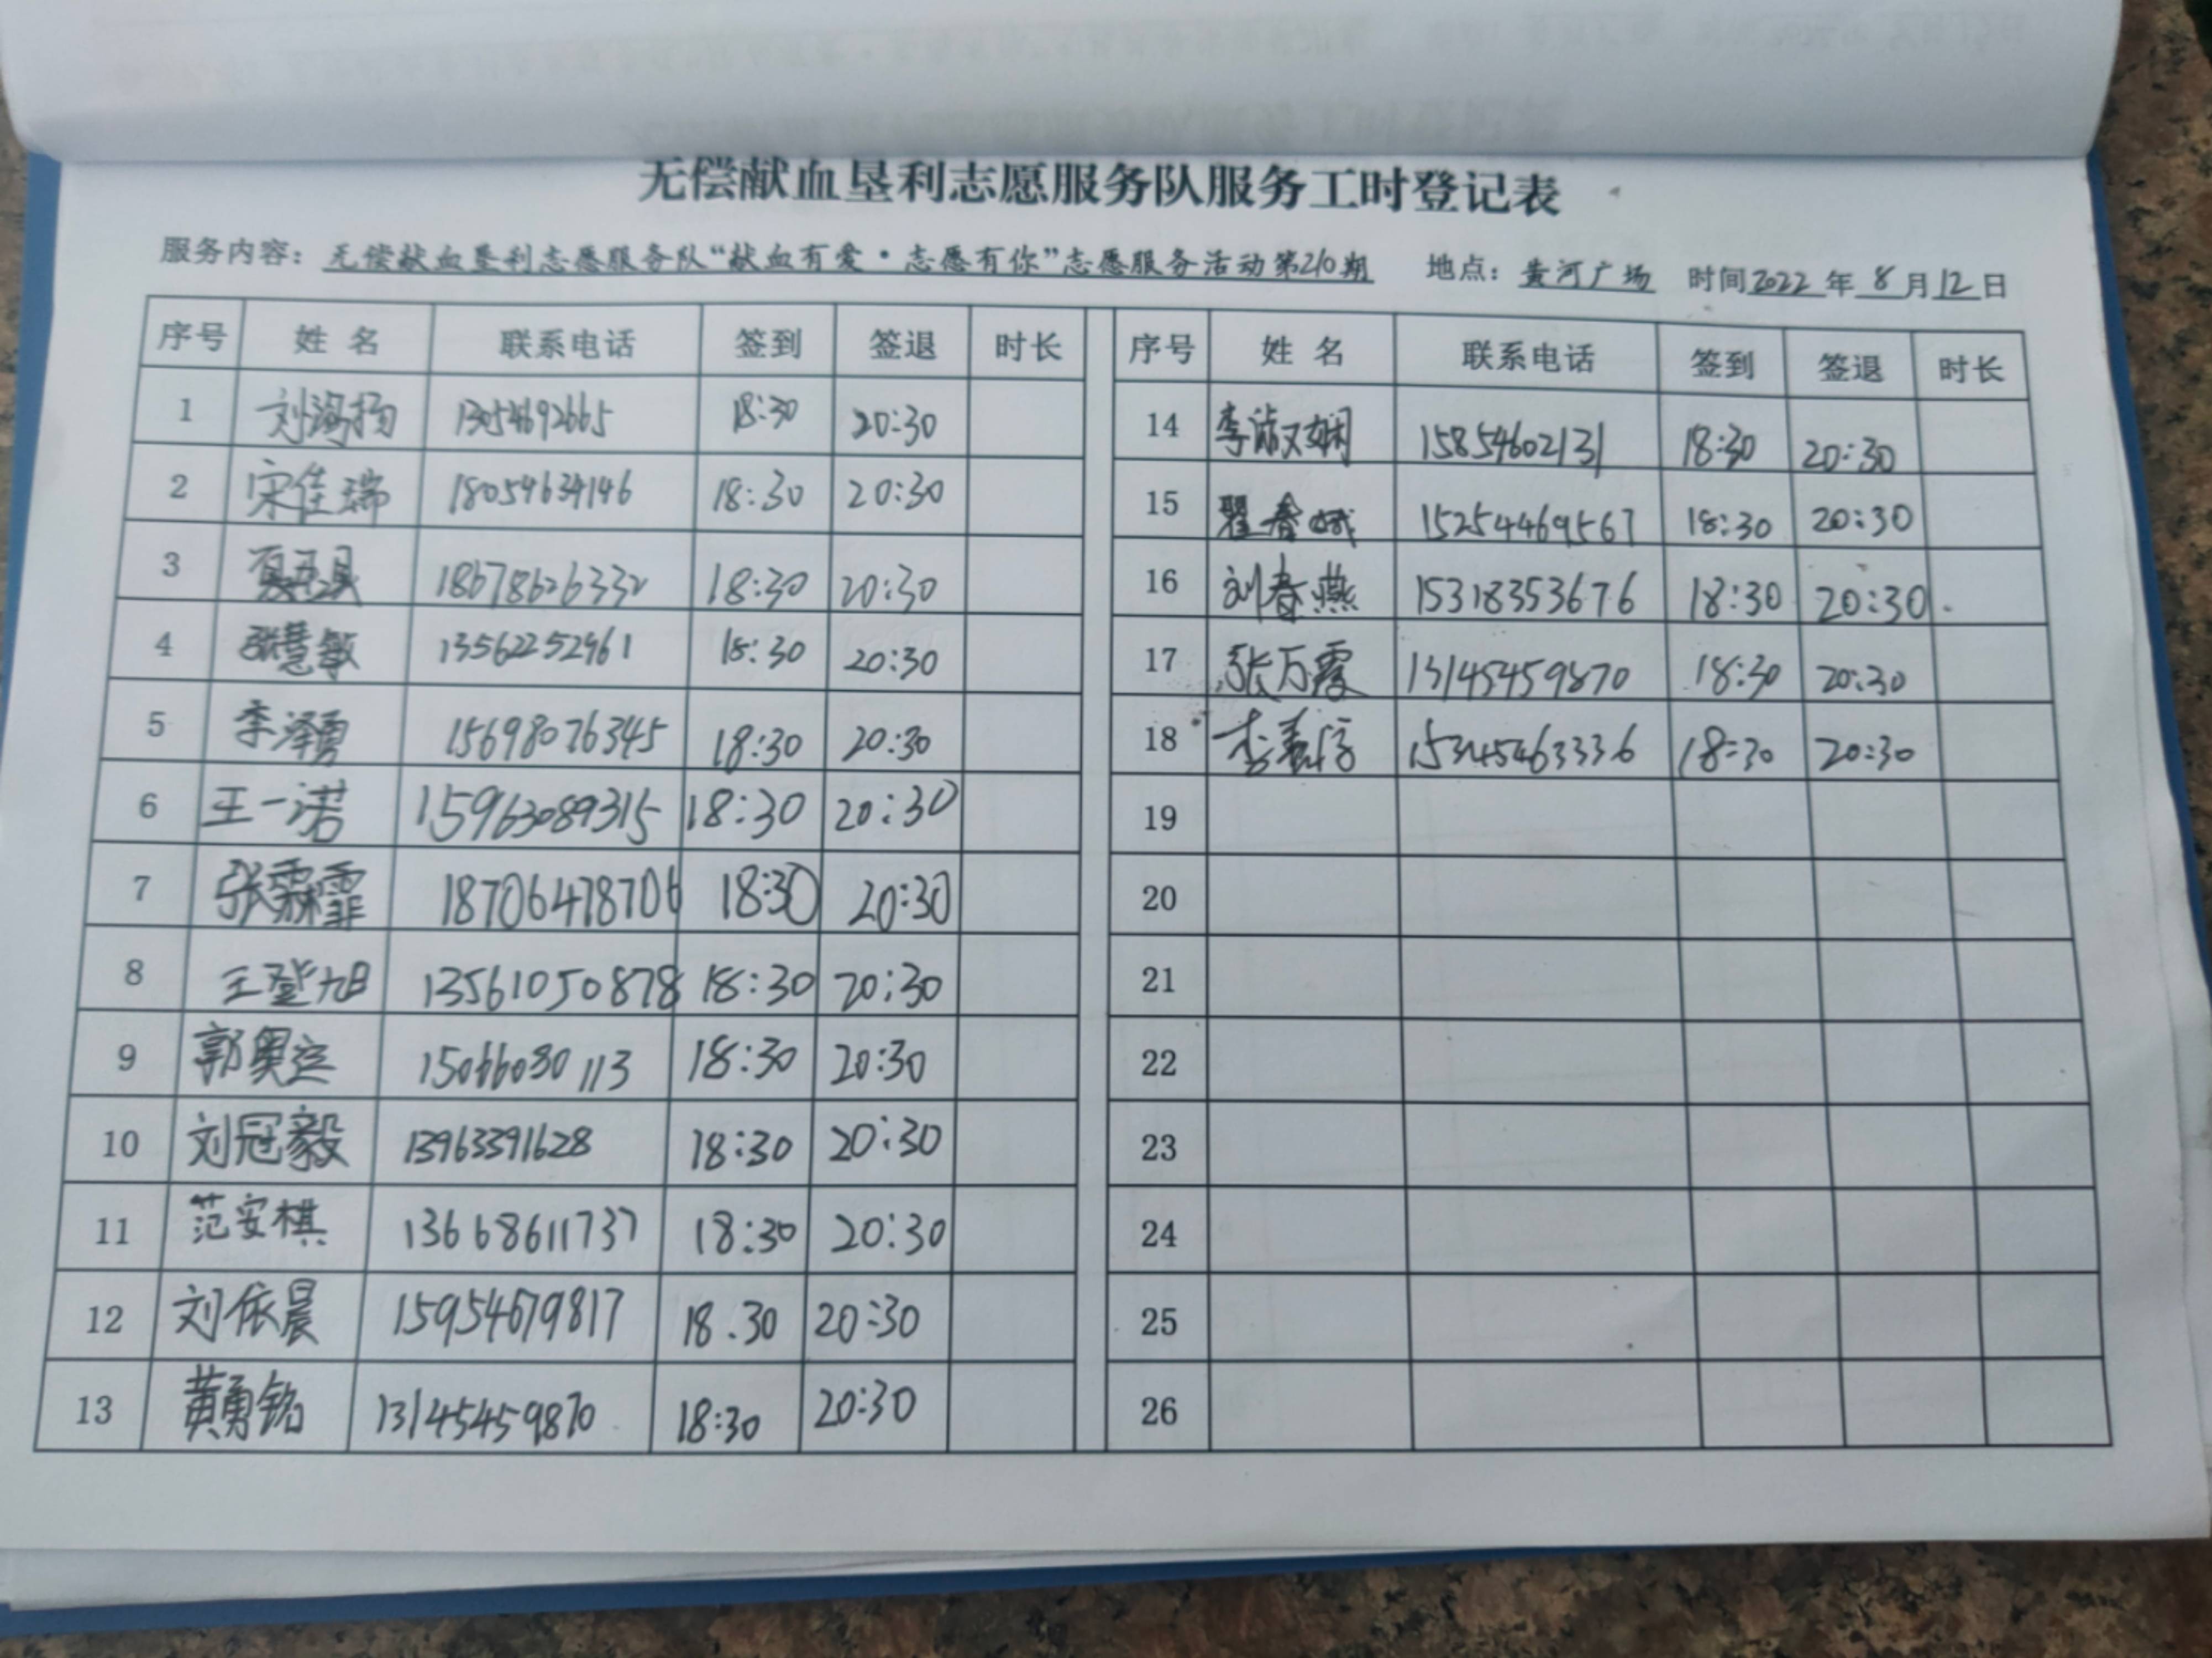 无偿献血垦利志愿服务队服务工时登记表
服务内容：无偿献血垦利志愿服务队“献血有爱·志愿有你”志愿服务活动第210期 地点：黄河广场 时间2022年8月12日
序号 姓名 联系电话 签到 签退 时长 序号 姓名 联系电话 签到 签退 时长
1 刘海扬 13054692665 18:30 20:30 14 李淑娴 15854602131 18:30 20:30
2 宋佳瑞 18054634146 18:30 20:30 15 翟春娥 15254469567 18:30 20:30
3 18678626332 18:30 20:30 16 刘春燕 15318353676 18:30 20:30
4 张慧敏 13562252961 18:30 20:30 17 张万霞 13145459870 18:30 20:30
5 李泽勇 15698076345 18:30 20:30 18 15345463336 18:30 20:30
6 王一诺 15963089315 18:30 20:30 19
7 张霖霏 18706478706 18:30 20:30 20
8 王登旭 13561050878 18:30 20:30 21
9 郭奥运 15066080113 18:30 20:30 22
10 刘冠毅 13963391628 18:30 20:30 23
11 范安棋 13668611737 18:30 20:30 24
12 刘依晨 15954679817 18.30 20:30 25
13 黄勇铭 13145459870 18:30 20:30 26